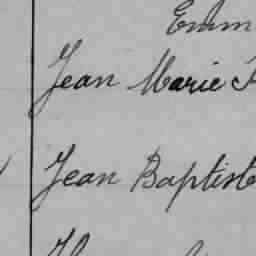 Emm
Jean Marie F
Jean Baptiste